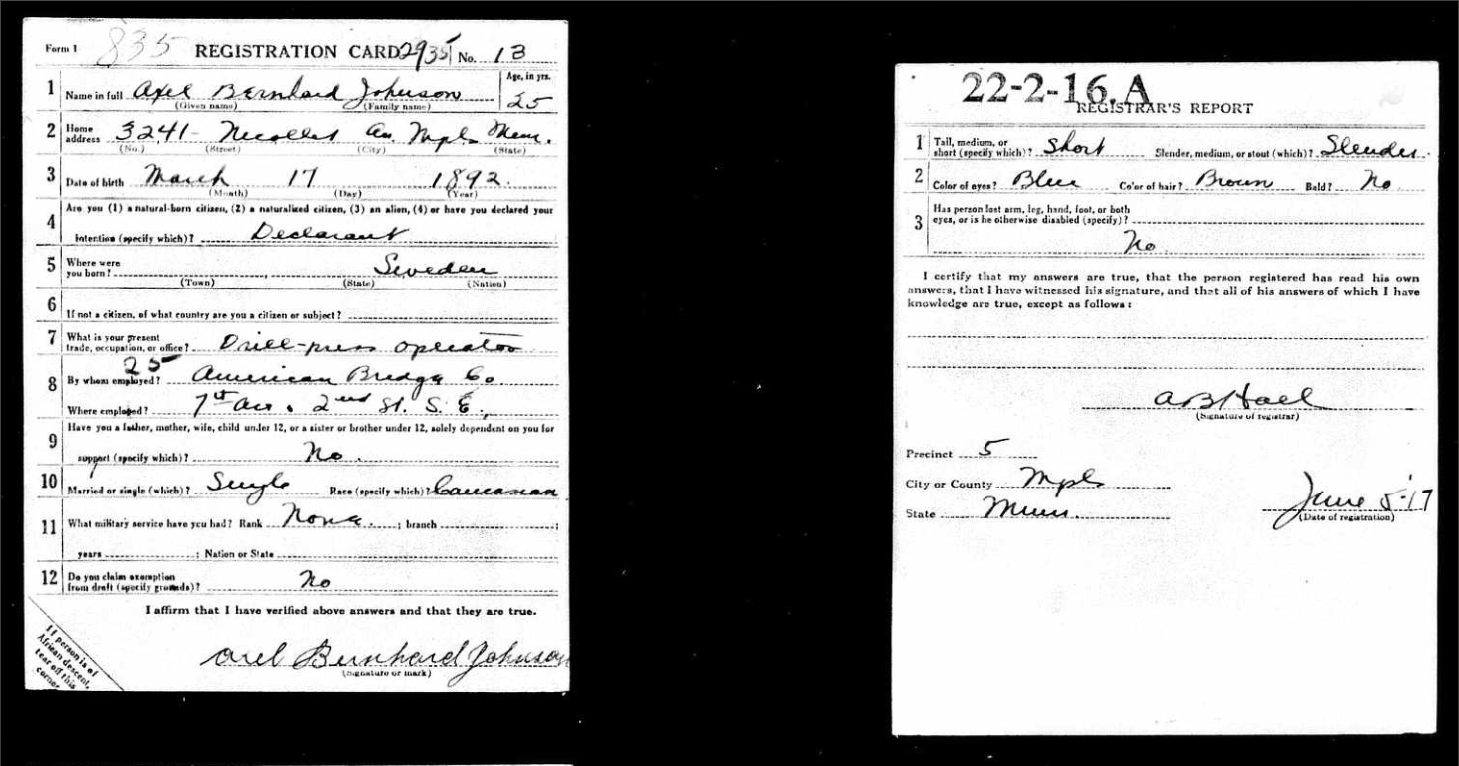 Form 1 835 REGISTRATION CARD 2935 No. 13
1 Name in full Axel Bernhard Johnson Age, in yrs. 25
(Given name) (Family name)
2 Home address 3241- Nicollet Av. Mpls Minn.
(No.) (Street) (City) (State)
3 Date of birth March 17 1892.
(Month) (Day) (Year)
4 Are you (1) a natural-born citizen, (2) a naturalized citizen, (3) an alien, (4) or have you declared your
intention (specify which)? Declarant
5 Where were you born? Sweden
(Town) (State) (Nation)
6 If not a citizen, of what country are you a citizen or subject?
7 What is your present trade, occupation, or office? Drill-press operator
25
8 By whom employed? American Bridge Co.
Where employed? 7th Av. 2nd St. S. E.
9 Have you a father, mother, wife, child under 12, or a sister or brother under 12, solely dependent on you for
support (specify which)? No.
10 Married or single (which)? Single Race (specify which)? Caucasian
11 What military service have you had? Rank None. ; branch ;
years ; Nation or State
12 Do you claim exemption from draft (specify grounds)? No
I affirm that I have verified above answers and that they are true.
Axel Bernhard Johnson
(Signature or mark)
If person is of
African descent,
tear off this
corner.
22-2-16. A
REGISTRAR'S REPORT
1 Tall, medium, or short (specify which)? Short Slender, medium, or stout (which)? Slender.
2 Color of eyes? Blue Color of hair? Brown Bald? No.
3 Has person lost arm, leg, hand, foot, or both
eyes, or is he otherwise disabled (specify)?
No.
I certify that my answers are true, that the person registered has read his own
answers, that I have witnessed his signature, and that all of his answers of which I have
knowledge are true, except as follows:
A B Hall
(Signature of registrar)
Precinct 5
City or County Mpls
State Minn.
June 5-17
(Date of registration)